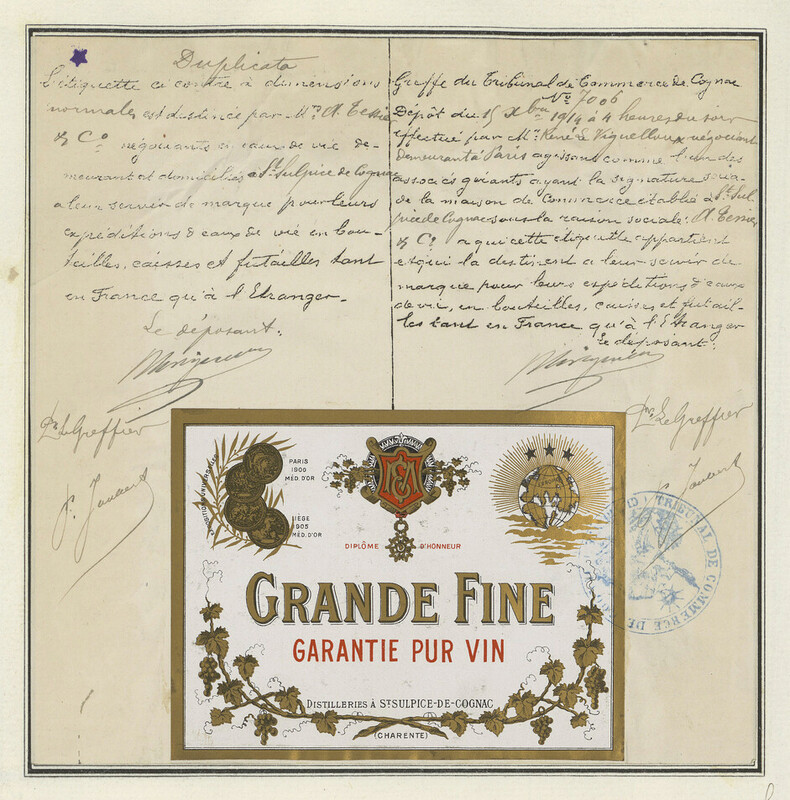 Duplicata
L'étiquette ci contre à dimensions
normales est destinée par Mrs A. Tessier
& Co négociants en eaux de vie de-
meurant et domiciliés à St Sulpice de Cognac
a leur servir de marque pour leurs
expéditions d'eaux de vie en bou-
teilles, caisses et futailles tant
en France qu'à l'Etranger.
Le déposant:
Pr Le Greffier
Greffe du Tribunal de Commerce de Cognac
No 7006
Dépôt du 15 Xbre 1914 à 4 heures du soir
effectué par Mr René de négociant
demeurant à Paris agissant comme l'un des
associés gérants ayant la signature socia-
le de la maison de Commerce établie à St Sul-
pice de Cognac sous la raison sociale: A. Tessier
& Co a qui cette étiquette appartient
et qui la destinent a leur servir de
marque pour leurs expéditions d'eaux
de vie, en bouteilles, caisses et futail-
les tant en France qu'à l'Etranger
Le déposant:
Pr Le Greffier
EXPOSITION UNIVERSELLE
PARIS
1900
MÉD. D'OR
LIÈGE
1905
MÉD. D'OR
DIPLÔME D'HONNEUR
GRANDE FINE
GARANTIE PUR VIN
DISTILLERIES À ST SULPICE-DE-COGNAC
(CHARENTE)
TRIBUNAL DE COMMERCE DE